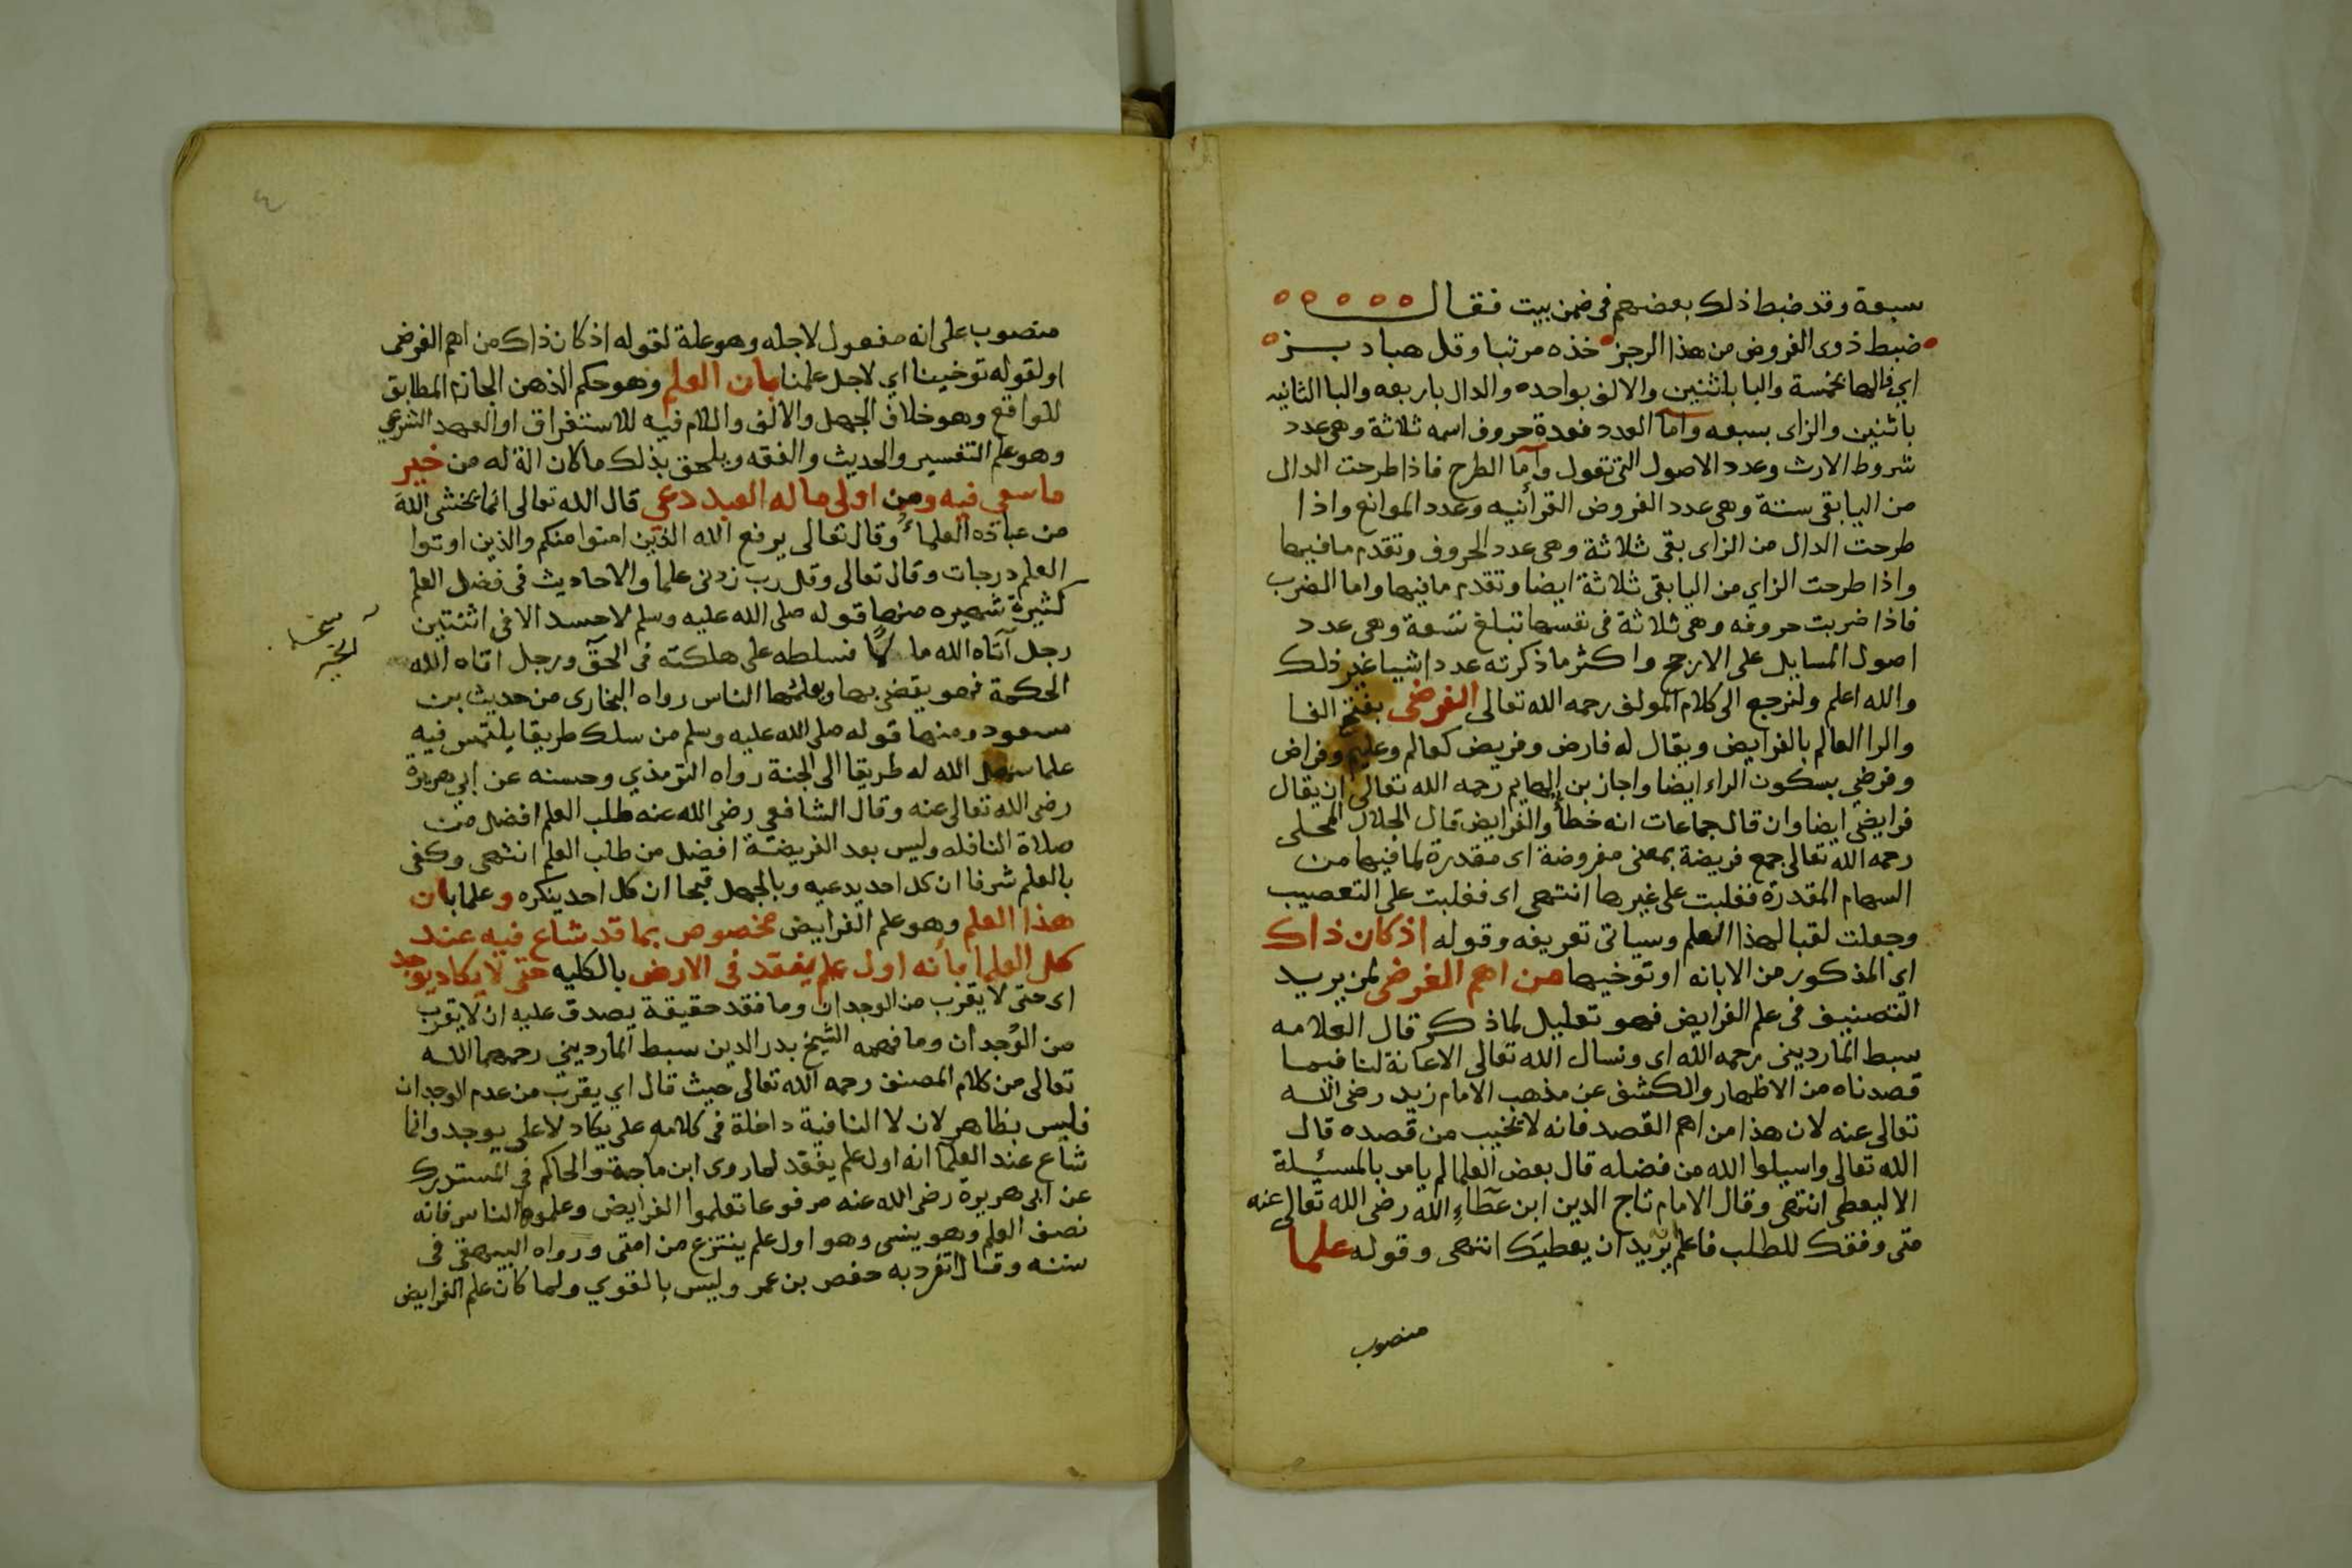 سبعة وقد ضبط ذلك بعضهم فى ضمن بيت فقال
ضبط ذوى الفروض من هذا الرجز خذه مرتبا وقل هبادبز
اي فالها بخمسة والبا باثنين والالف بواحده والدال باربعه والبا الثانيه
باثنين والزاى بسبعه وأما العدد فعدة حروف اسمه ثلاثة وهى عدد
شروط الارث وعدد الاصول التى تعول وأما الطرح فاذا طرحت الدال
من اليا بقى ستة وهى عدد الفروض القرأنيه وعدد الموانع واذا
طرحت الدال من الزاى بقى ثلاثة وهى عدد الحروف وتقدم ما فيها
واذا طرحت الزاي من اليا بقى ثلاثة ايضا وتقدم ما فيها واما الضرب
فاذا ضربت حروفه وهى ثلاثة فى نفسها تبلغ تسعة وهى عدد
اصول المسايل على الارجح واكثر ما ذكرته عدد اشيا غير ذلك
والله اعلم ولنرجع الى كلام المولف رحمه الله تعالى الفرضى بفتح الفا
والرا العالم بالفرايض ويقال له فارض وفريض كعالم وعليم وفراض
وفرضي بسكون الراء ايضا واجاز بن الهايم رحمه الله تعالى ان يقال
فرايضي ايضا وان قال جماعات انه خطأ والفرايض قال الجلال المحلى
رحمه الله تعالى جمع فريضة بمعنى مفروضة اى مقدرة لما فيها من
السهام المقدرة فغلبت على غيرها انتهى اى فغلبت على التعصيب
وجعلت لقبا لهذا العلم وسياتى تعريفه وقوله اذ كان ذاك
اي المذكور من الابانه او توخيها من اهم الغرض لمن يريد
التصنيف فى علم الفرايض فهو تعليل لما ذكر قال العلامه
سبط المارديني رحمه الله اى ونسال الله تعالى الاعانة لنا فيما
قصدناه من الاظهار والكشف عن مذهب الامام زيد رضى الله
تعالى عنه لان هذا من اهم القصد فانه لا يخيب من قصده قال
الله تعالى واسيلوا الله من فضله قال بعض العلما لم يامر بالمسئلة
الا ليعطى انتهى وقال الامام تاج الدين ابن عطاء الله رضى الله تعالى عنه
متى وفقك للطلب فاعلم انه يريد ان يعطيك انتهى وقوله علما
منصوب
٤
منصوب على انه مفعول لاجله وهو علة لقوله اذ كان ذاك من اهم الغرض
او لقوله توخينا اي لاجل علمنا بان العلم وهو حكم الذهن الجازم المطابق
للواقع وهو خلاف الجهل والالف واللام فيه للاستغراق او العهد الشرعي
وهو علم التفسير والحديث والفقه ويلحق بذلك ما كان الة له من خير
ما سعي فيه ومن اولى ما له العبد دعي قال الله تعالى انما يخشى الله
من عباده العلماء وقال تعالى يرفع الله الذين امنوا منكم والذين اوتوا
العلم درجات وقال تعالى وقل رب زدنى علما والاحاديث فى فضل العلم
كثيرة شهيره منها قوله صلى الله عليه وسلم لا حسد الا فى اثنتين
رجل آتاه الله مالا فسلطه على هلكته فى الحق ورجل اتاه الله
الحكمة فهو يقضى بها ويعلمها الناس رواه البخارى من حديث بن
مسعود ومنها قوله صلى الله عليه وسلم من سلك طريقا يلتمس فيه
علما سهل الله له طريقا الى الجنة رواه الترمذي وحسنه عن ابي هريرة
رضى الله تعالى عنه وقال الشافعي رضى الله عنه طلب العلم افضل من
صلاة النافله وليس بعد الفريضة افضل من طلب العلم انتهى وكفى
بالعلم شرفا ان كل احد يدعيه وبالجهل قبحا ان كل احد ينكره وعلما بان
هذا العلم وهو علم الفرايض مخصوص بما قد شاع فيه عند
كل العلما بأنه اول علم يفقد فى الارض بالكليه حتى لا يكاد يوجد
اى حتى لا يقرب من الوجدان وما فقد حقيقة يصدق عليه ان لا يقرب
من الوجدان وما فهمه الشيخ بدر الدين سبط المارديني رحمهما الله
تعالى من كلام المصنف رحمه الله تعالى حيث قال اي يقرب من عدم الوجدان
فليس بظاهر لان لا النافية داخلة فى كلامه على يكاد لا على يوجد وانما
شاع عند العلما انه اول علم يفقد لما روى ابن ماجة والحاكم فى المستدرك
عن ابى هريرة رضى الله عنه مرفوعا تعلموا الفرايض وعلموها الناس فانه
نصف العلم وهو ينسى وهو اول علم ينتزع من امتى ورواه البيهقى فى
سننه وقال تفرد به حفص بن عمر وليس بالقوي ولما كان علم الفرايض